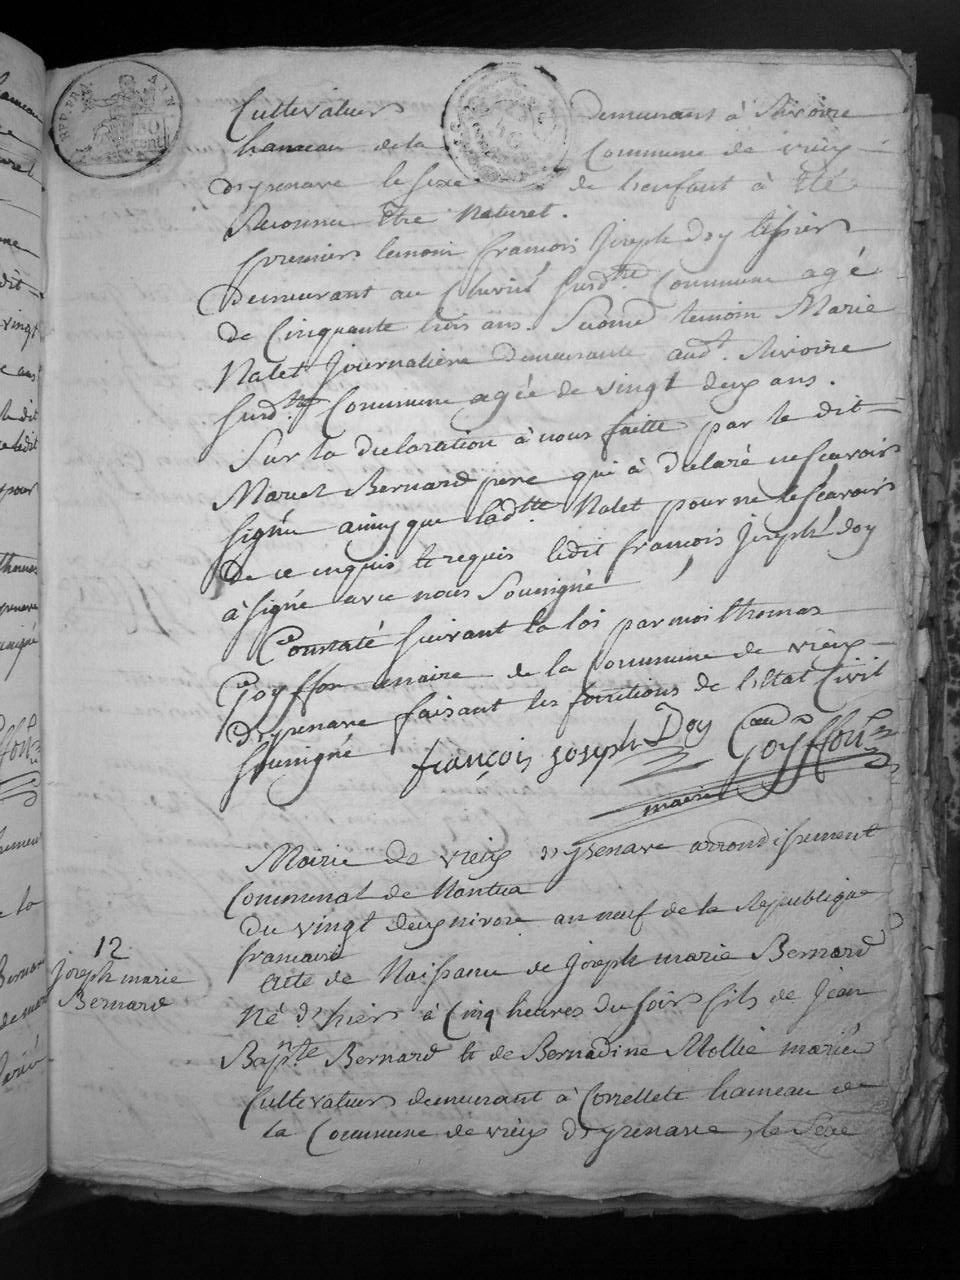 Cultivateurs Demeurant à Rivoire
hameau de la Commune de vieux
d'yzenave le sexe de l'enfant à été
Reconnu être Naturel.
premiers temoin françois Joseph Doy tessier
Demeurant au susd.tte Commune agé
de Cinquante trois ans. Second temoin Marie
Nalet Journatiere demeurante aud.t Rivoire
susd.tte Commune agée de vingt deux ans.
Sur la declaration à nous faitte par le dit
Bernard père qui à declaré ne scavoir
signé ainsy que lad.tte Nalet pour ne le scavoir
De ce enquis et requis ledit françois Joseph Doy
à signé avec nous Soussigné
Constaté suivant la loi par moi thomas
Goyffon maire de la Commune de vieux
d'yzenave faisant les fonctions de l'Etat Civil
soussigné françois joseph Doy Goyffon
maire
Mairie de vieux d'yzenave arrondissement
Communal de Nantua
Du vingt deux nivose an neuf de la Republique
francaise
12
joseph marie
Bernard
Acte de Naissance de Joseph marie Bernard
Né d'hier à Cinq heures du soir fils de Jean
Bap.tte Bernard et de Bernadine Mollie mariés
Cultivateurs demeurant à Corcellete hameau de
la Commune de vieux d'yzenave, le Sexe